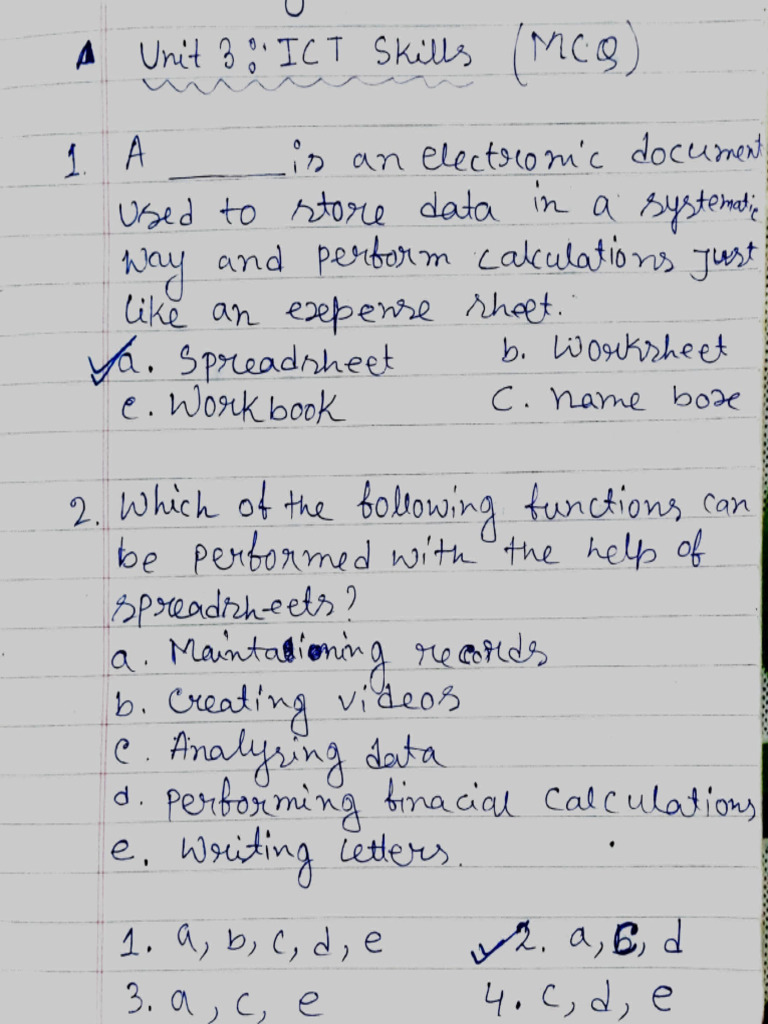 A Unit 3: ICT Skills (MCQ)
1. A ______ is an electronic document
Used to store data in a systematic
way and perform calculations Just
like an expense sheet.
✓a. Spreadsheet b. Worksheet
c. Workbook C. name box
2. Which of the following functions can
be performed with the help of
spreadsheets?
a. Maintaining records
b. Creating videos
c. Analysing data
d. Performing finacial Calculations
e. Writing letters.
1. a, b, c, d, e ✓2. a, c, d
3. a, c, e 4. c, d, e